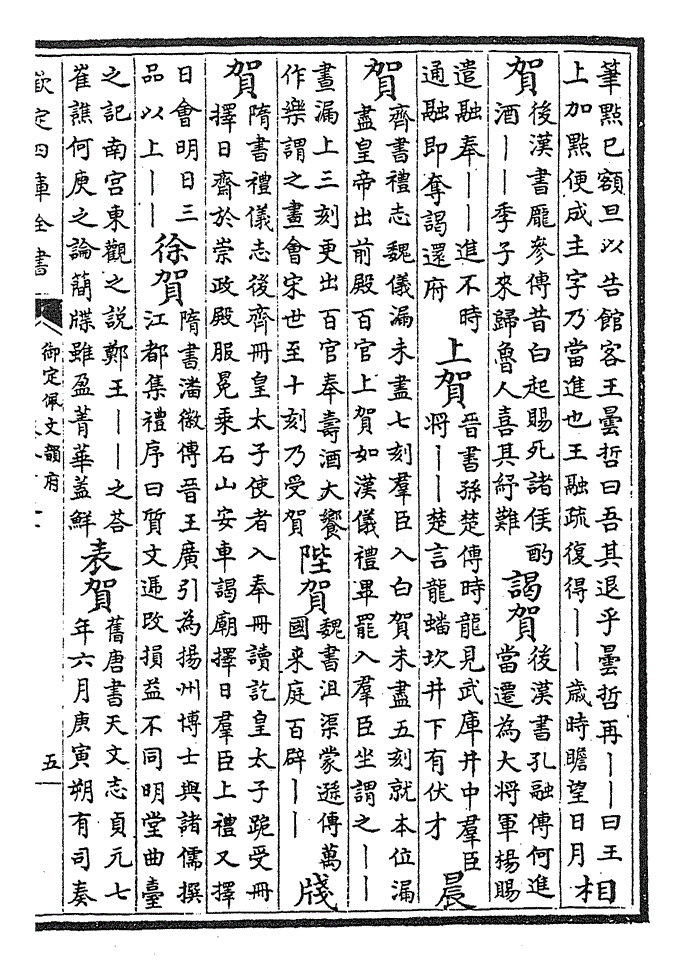 筆點已額旦以告館客王曇哲曰吾其退乎曇哲再丨丨曰王
上加點便成主字乃當進也王融疏復得丨丨歲時瞻望日月
相
賀
後漢書龐參傳昔白起賜死諸侯酌
酒丨丨季子來歸魯人喜其紓難
謁賀
後漢書孔融傳何進
當遷為大將軍楊賜
遣融奉丨丨進不時
通融即奪謁還府
上賀
晉書孫楚傳時龍見武庫井中羣臣
將丨丨楚言龍蟠坎井下有伏才
晨
賀
齊書禮志魏儀漏未盡七刻羣臣入白賀未盡五刻就本位漏
盡皇帝出前殿百官上賀如漢儀禮畢罷入羣臣坐謂之丨丨
晝漏上三刻更出百官奉壽酒大饗
作樂謂之晝會宋世至十刻乃受賀
陛賀
魏書沮渠蒙遜傳萬
國来庭百辟丨丨
牋
賀
隋書禮儀志後齊冊皇太子使者入奉冊讀訖皇太子跪受冊
擇日齋於崇政殿服冕乘石山安車謁廟擇日羣臣上禮又擇
日會明日三
品以上丨丨
徐賀
隋書潘徽傳晉王廣引為揚州博士與諸儒撰
江都集禮序曰質文遞改損益不同明堂曲臺
之記南宮東觀之說鄭王丨丨之荅
崔譙何庾之論簡牒雖盈菁華蓋鮮
表賀
舊唐書天文志貞元七
年六月庚寅朔有司奏
欽定四庫全書
御定佩文韻府
五